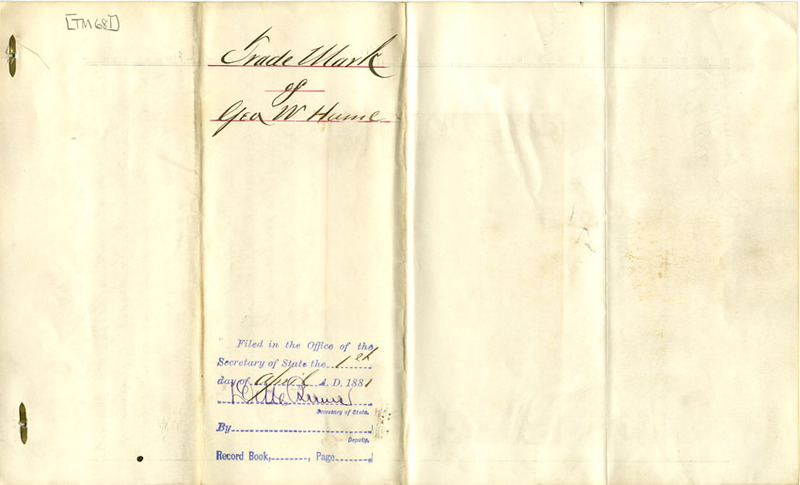 [TM68]
Trade Mark
of
Geo W Hume
Filed in the Office of the
Secretary of State the 1st
day of April A. D. 1881
Secretary of State.
By
Deputy.
Record Book, Page